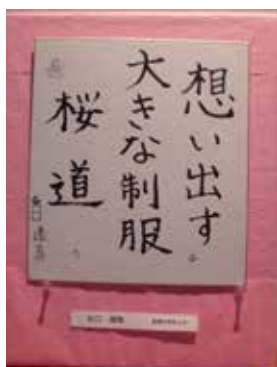 想い出す
大きな制服
桜道